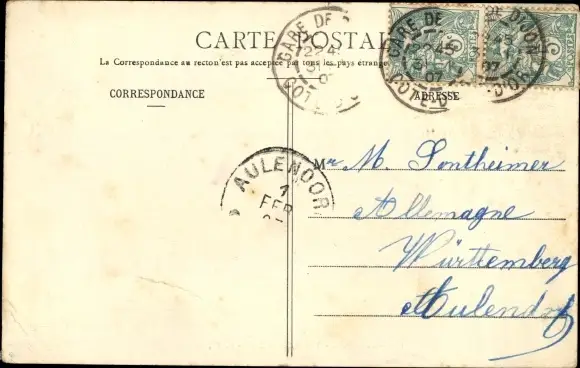 CARTE POSTALE
La Correspondance au recto n'est pas acceptée par tous les pays étrangers
CORRESPONDANCE
ADRESSE
GARE DE
22 45
07
CÔTE-D'
GARE DE
22 45
07
CÔTE-D'
DIJON
45
07
D'OR
AULENDORF
1
FEB
Mr M. Sontheimer
Allemagne
Württemberg
Aulendorf